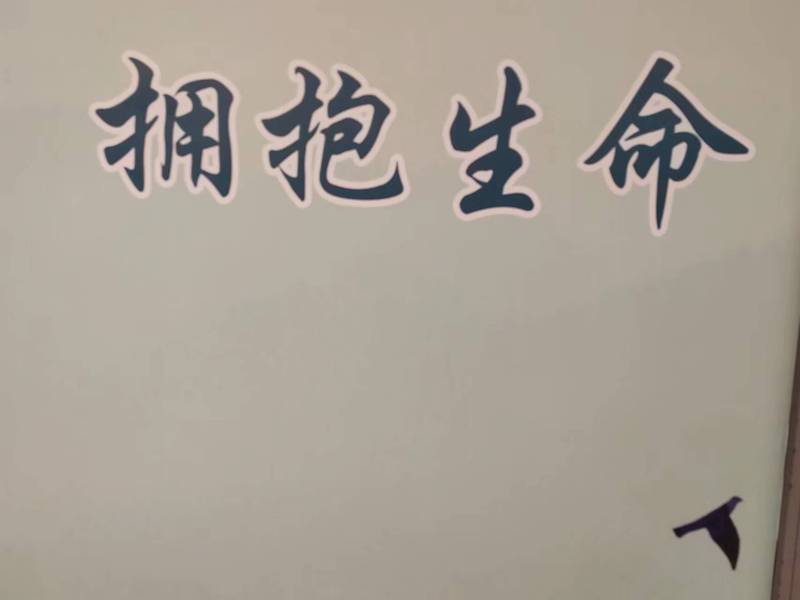 拥抱生命